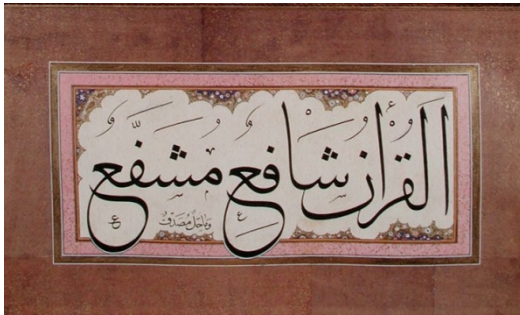 القرآن شافع مشفع
وماحل مصدق